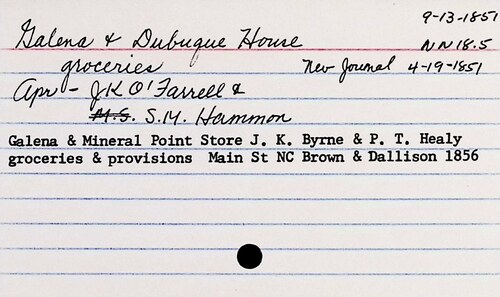 9-13-1851
Galena & Dubuque House NN 18.5
groceries Nev Journal 4-19-1851
Apr - J K O'Farrell &
M.S. S.M. Hammon
Galena & Mineral Point Store J. K. Byrne & P. T. Healy
groceries & provisions Main St NC Brown & Dallison 1856